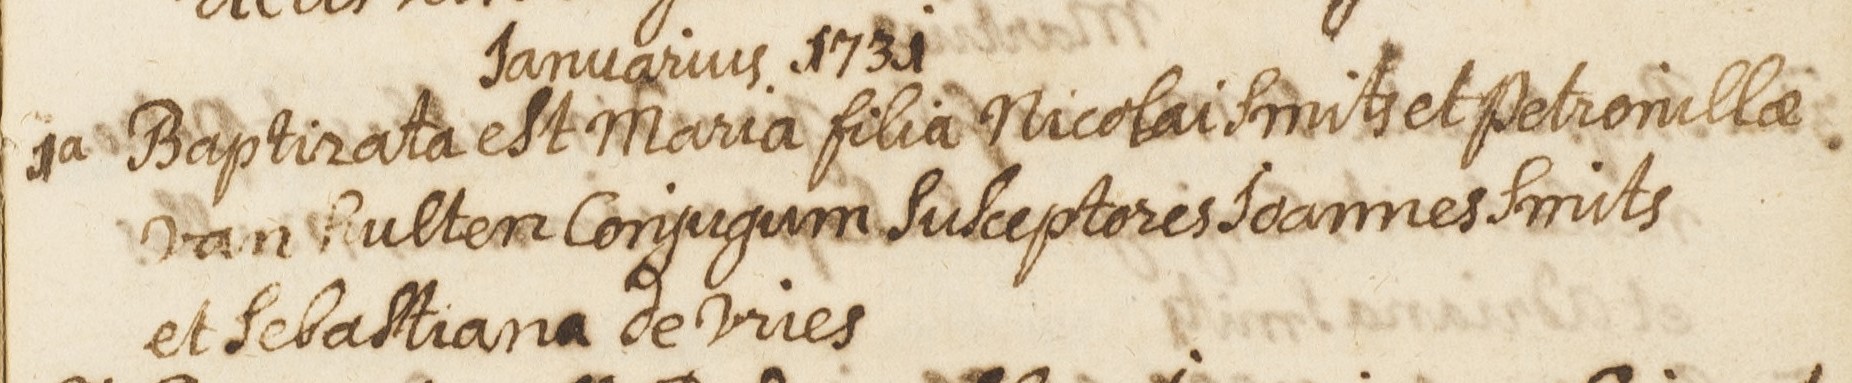 Januarius 1731
1a Baptizata est Maria filia Nicolai Smits et Petronillæ
van Hulten Conjugum Susceptores Joannes Smits
et Sebastiana de Vries